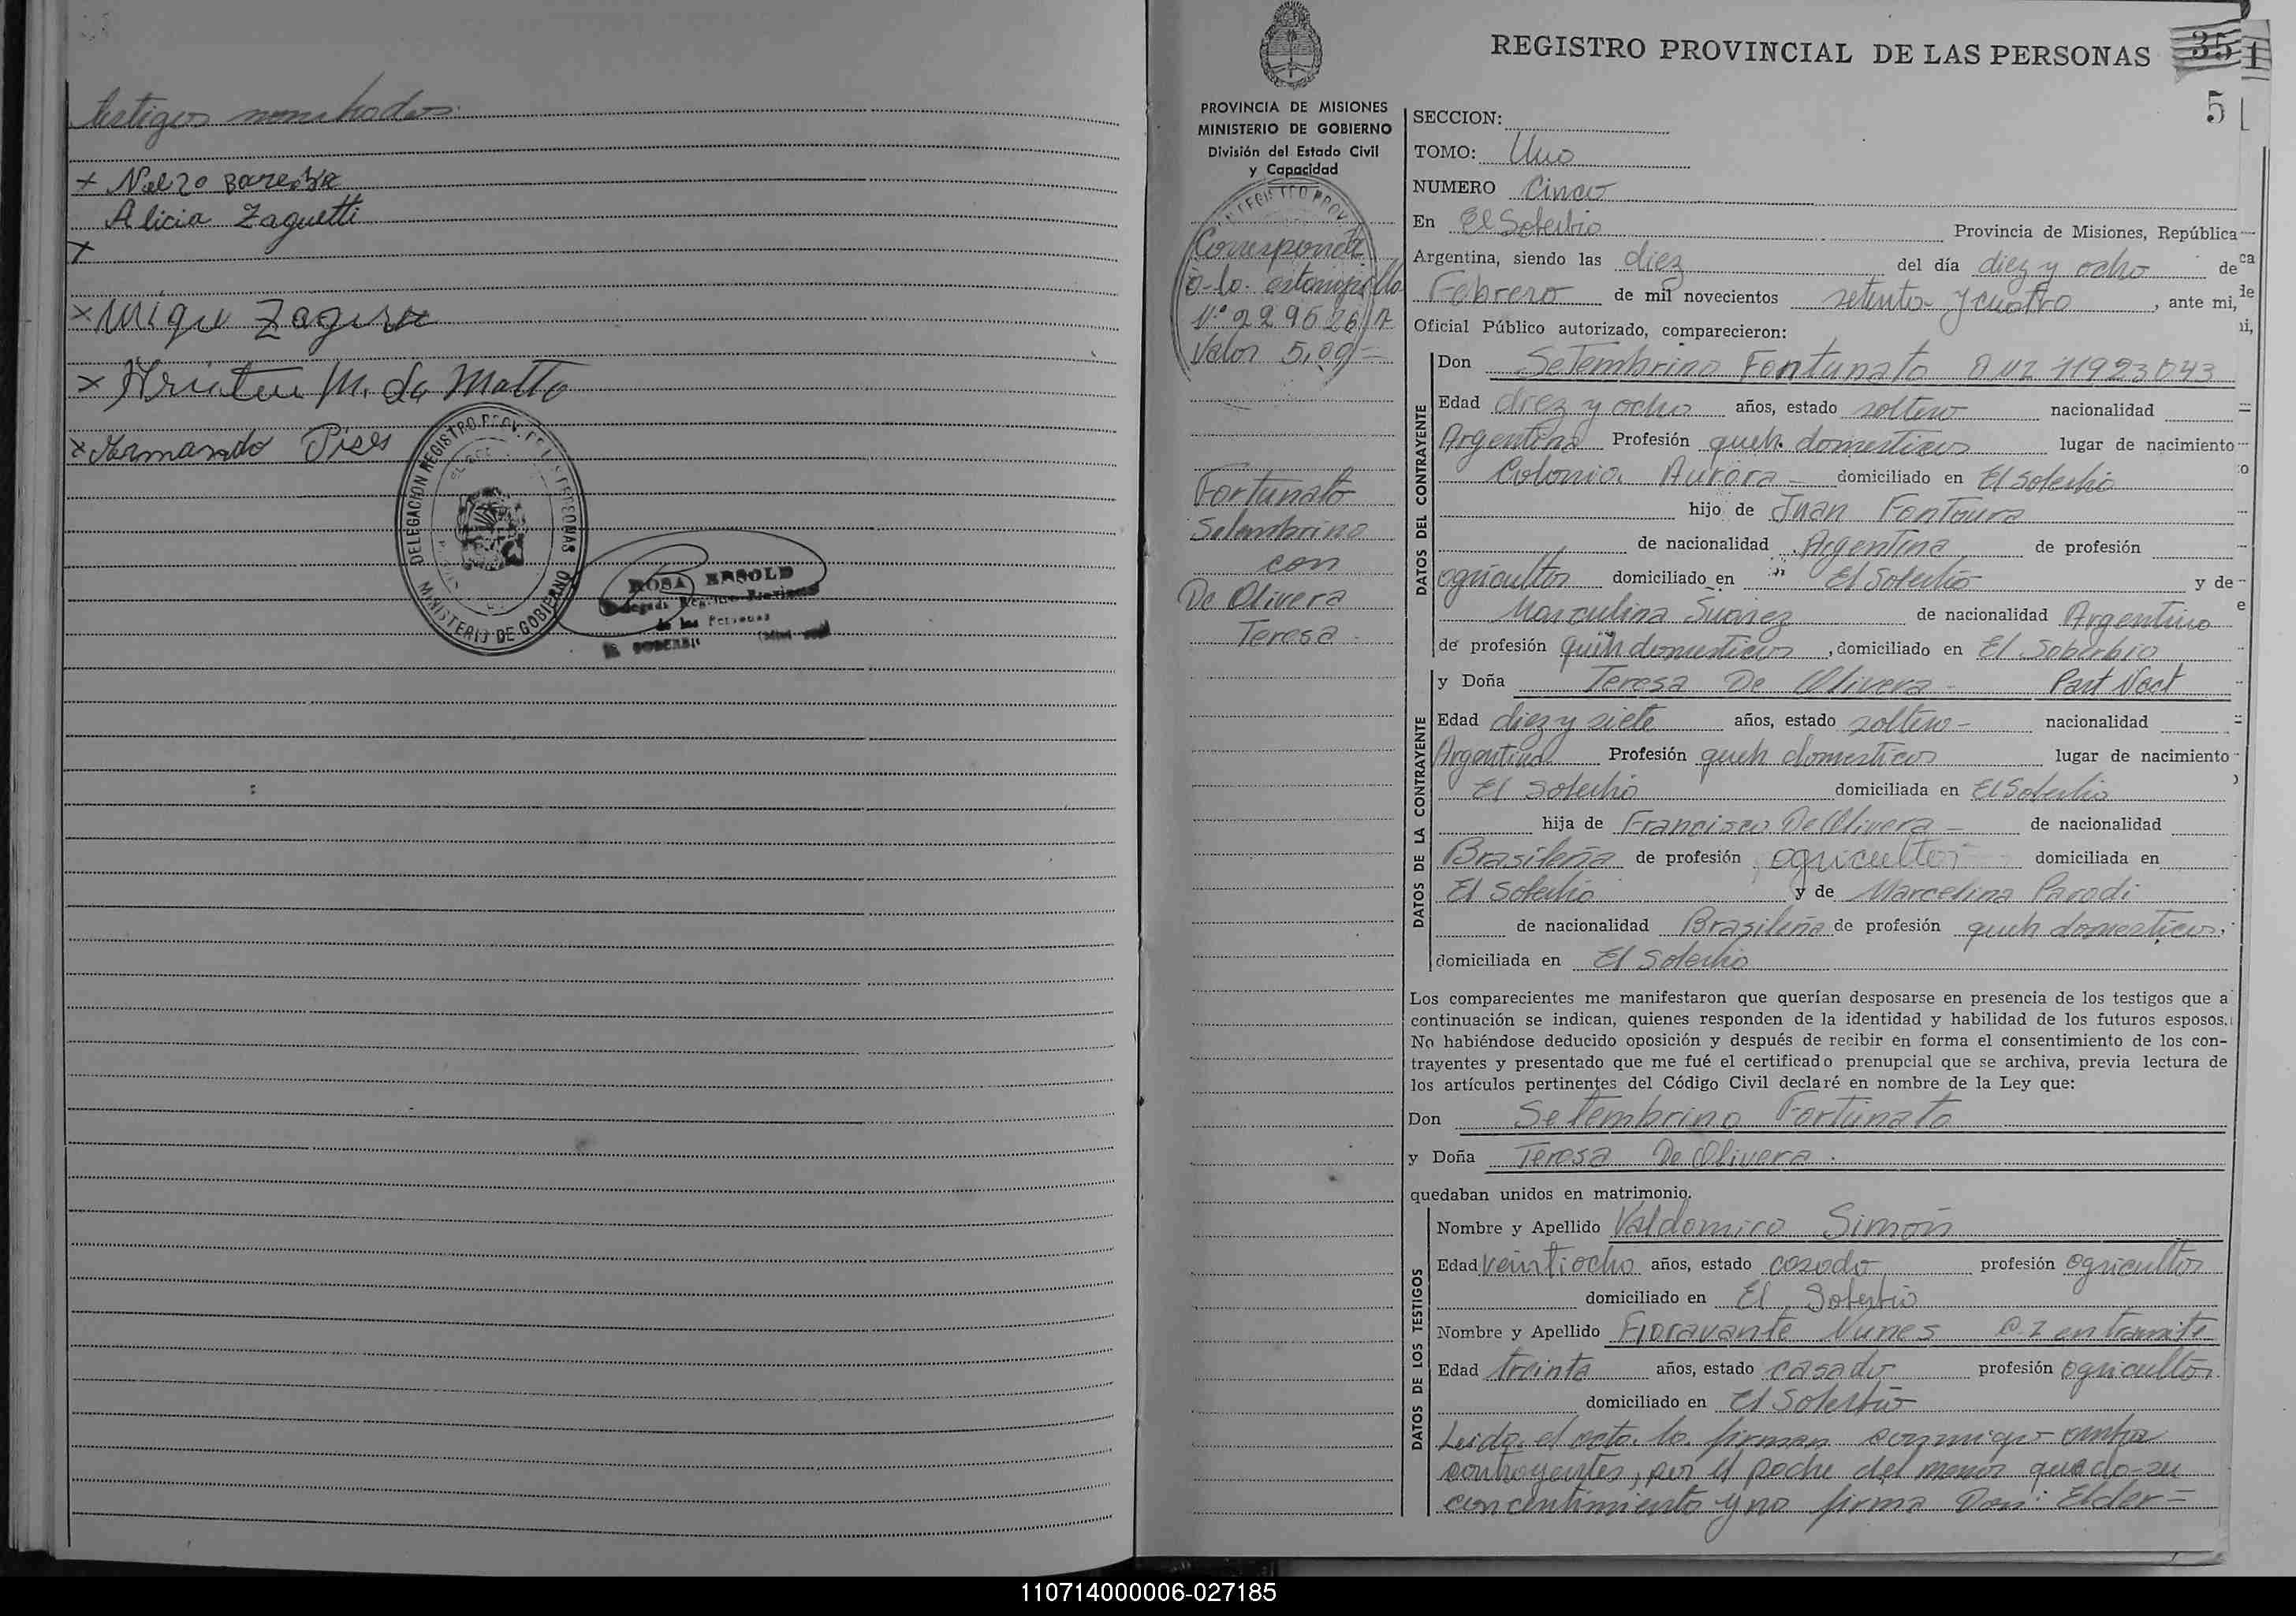 testigos nombrados.
x Nelzo Bareira
Alicia Zaguetti
x
x Migue Zagura
x M. da Matta
x Armando Pires
DELEGACION REGISTRO PROV. DE LAS PERSONAS
MINISTERIO DE GOBIERNO
ROSA ERSOLD
Delegada Registro Provincial
de las Personas
EL SOBERBIO
REGISTRO PROVINCIAL DE LAS PERSONAS
351
5
PROVINCIA DE MISIONES
MINISTERIO DE GOBIERNO
División del Estado Civil
y Capacidad
Corresponde
a la estampilla
Nº 229626 A
Valor 5,00 =
Fortunato
Setembrino
con
De Olivera
Teresa
SECCION:
TOMO: Uno
NUMERO Cinco
En El Soberbio Provincia de Misiones, República
Argentina, siendo las diez del día diez y ocho de
Febrero de mil novecientos setenta y cuatro, ante mi,
Oficial Público autorizado, comparecieron:
DATOS DEL CONTRAYENTE
Don Setembrino Fontunato 11923043
Edad diez y ocho años, estado soltero nacionalidad
Argentina Profesión queh. domesticos lugar de nacimiento
Colonia Aurora - domiciliado en El Soberbio
hijo de Juan Fontoura
de nacionalidad Argentina de profesión
agricultor domiciliado en " El Soberbio y de
Marculina Suarez de nacionalidad Argentina
de profesión queh domesticos, domiciliado en El Soberbio
DATOS DE LA CONTRAYENTE
y Doña Teresa De Olivera - Part Nact
Edad diez y siete años, estado soltero - nacionalidad
Argentina Profesión queh domesticos lugar de nacimiento
El Soberbio domiciliada en El Soberbio
hija de Francisco De Olivera - de nacionalidad
Brasileña de profesión agricultor domiciliada en
El Soberbio y de Marcelina Parodi
de nacionalidad Brasileña de profesión queh domesticos,
domiciliada en El Soberbio
Los comparecientes me manifestaron que querían desposarse en presencia de los testigos que a
continuación se indican, quienes responden de la identidad y habilidad de los futuros esposos.
No habiéndose deducido oposición y después de recibir en forma el consentimiento de los con-
trayentes y presentado que me fué el certificado prenupcial que se archiva, previa lectura de
los artículos pertinentes del Código Civil declaré en nombre de la Ley que:
Don Setembrino Fortunato
y Doña Teresa De Olivera.
quedaban unidos en matrimonio.
DATOS DE LOS TESTIGOS
Nombre y Apellido Valdomiro Simón
Edad veintiocho años, estado casado profesión agricultor
domiciliado en El Soberbio
Nombre y Apellido Fioravante Nunes C.I en tramite
Edad treinta años, estado casado profesión agricultor
domiciliado en El Soberbio
Leida el acta la firman conmigo ambos
contrayentes, por el padre del menor que da su
concentimiento y no firma Don: Elder =
110714000006-027185